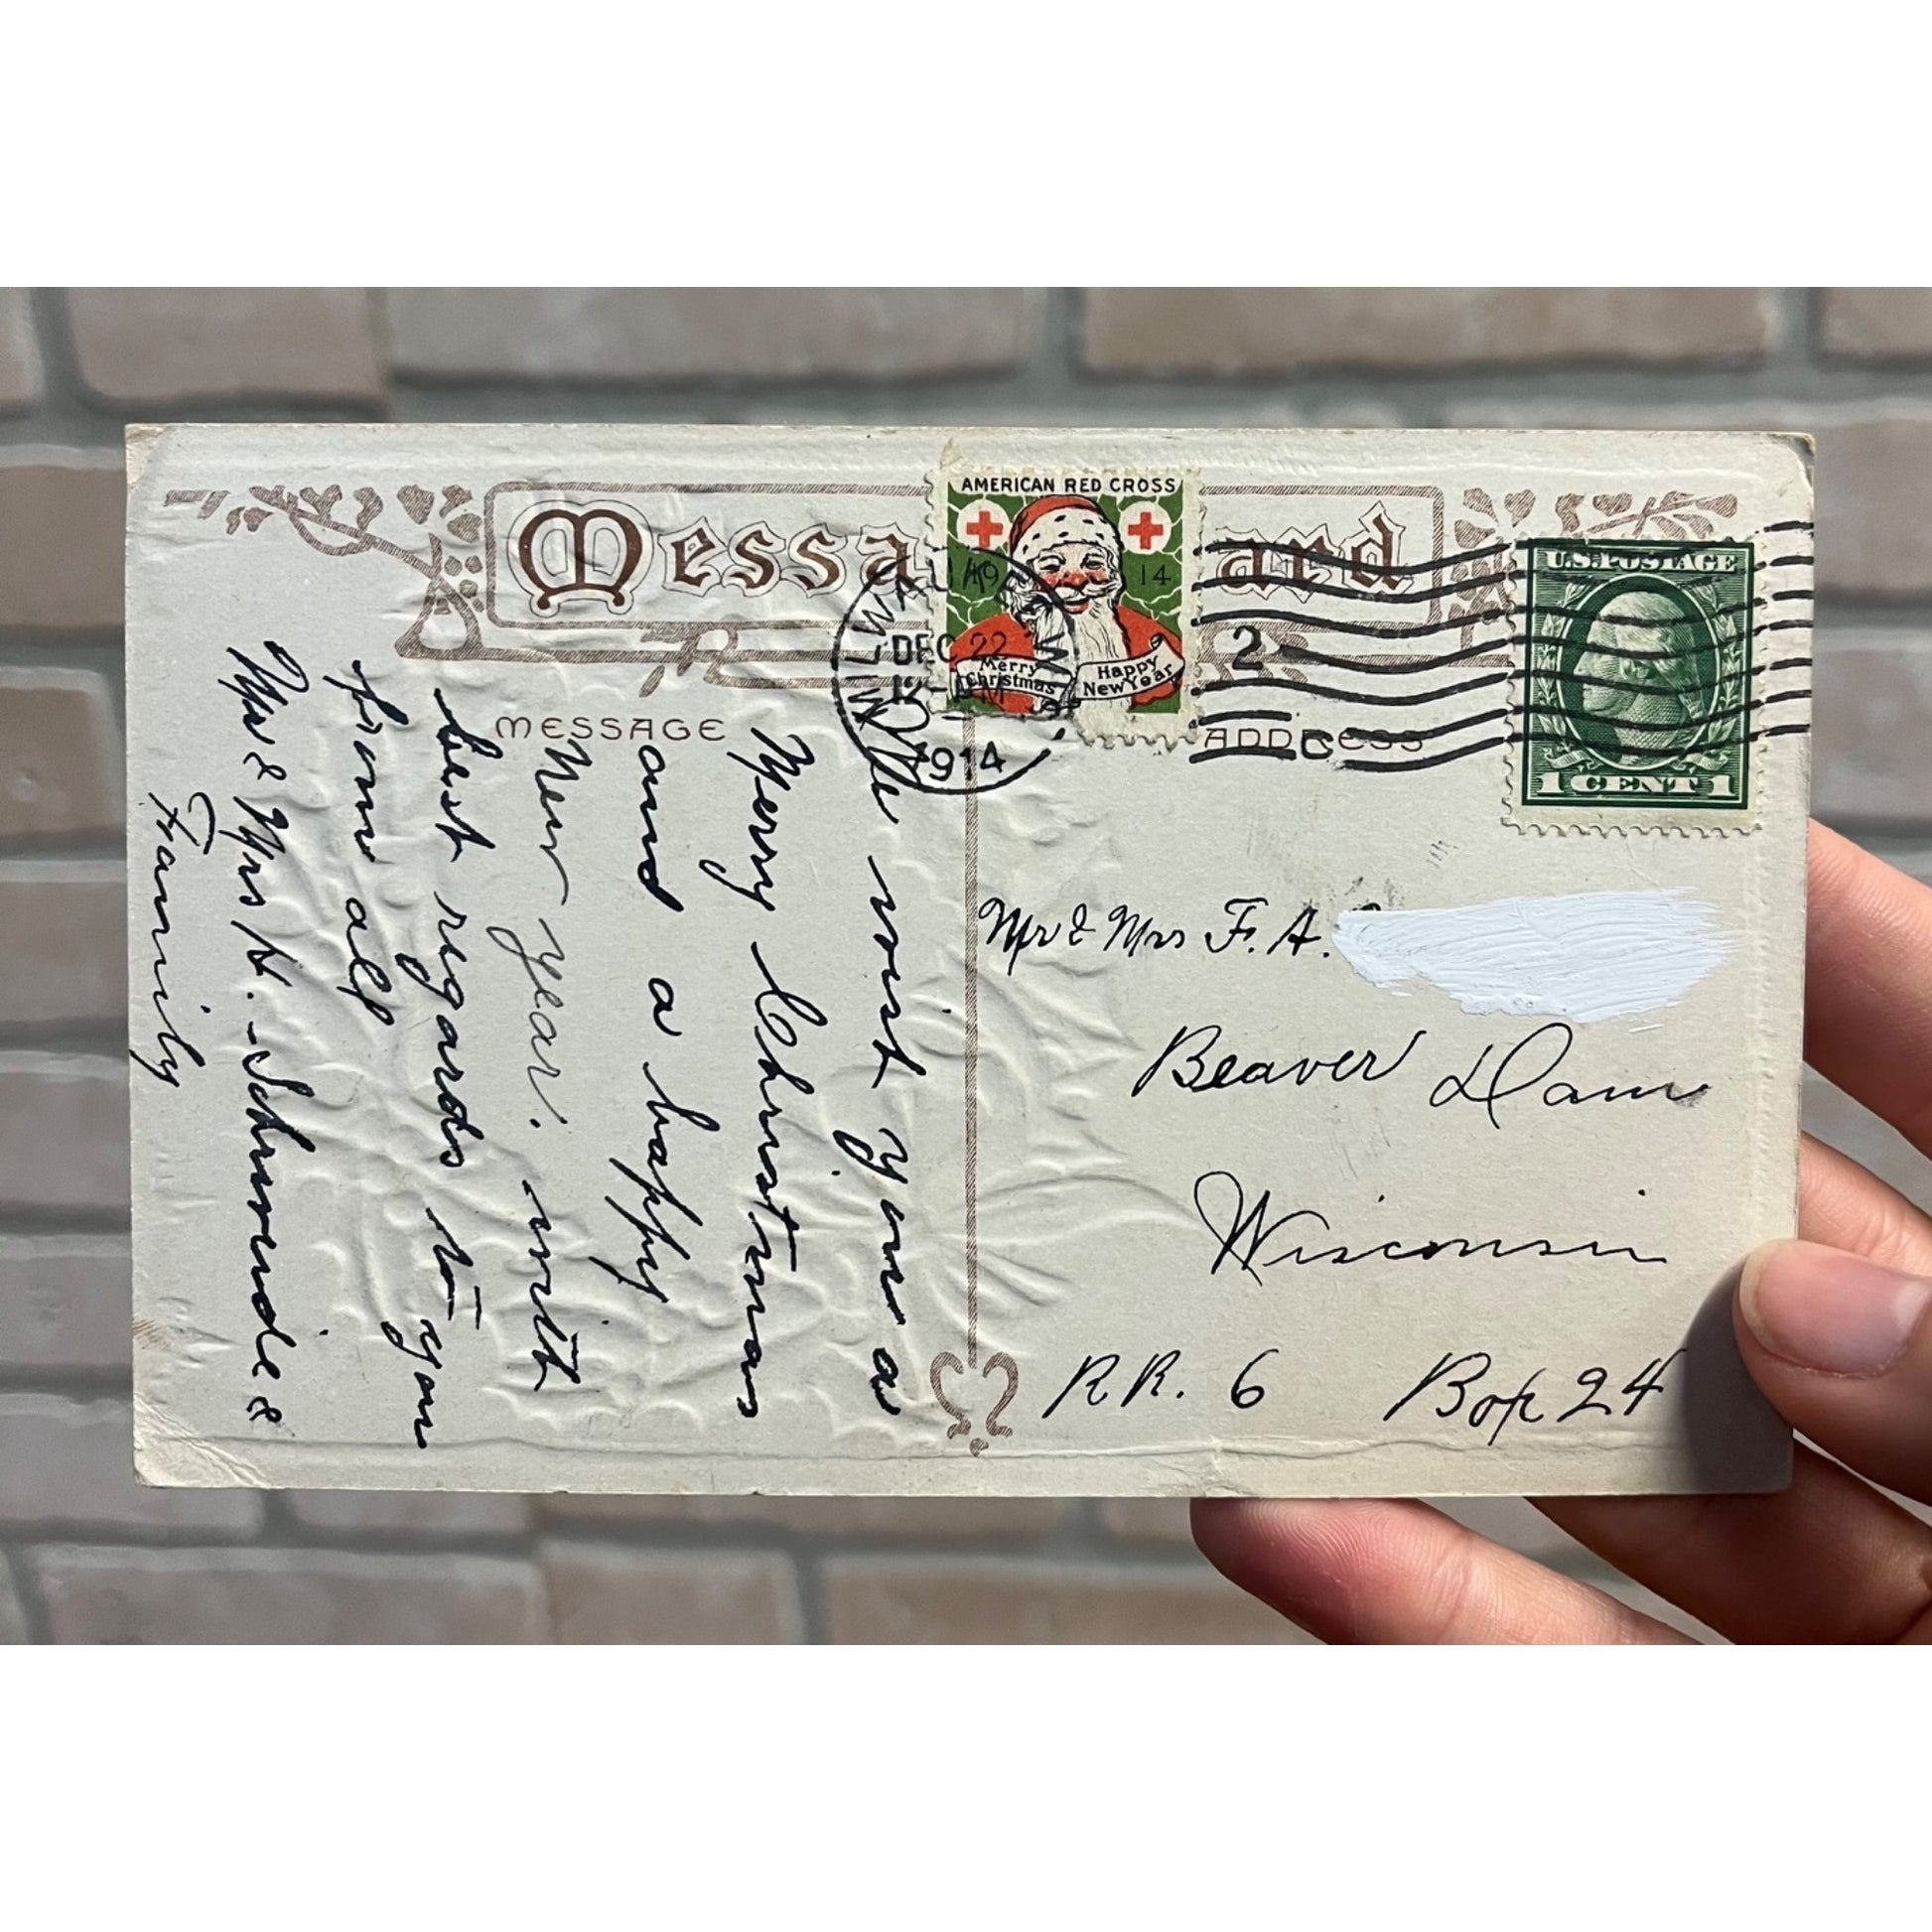 Message Card
AMERICAN RED CROSS
19 14
Merry Christmas
Happy New Year
MILWAUKEE, WIS.
DEC 22
1914
2
U.S. POSTAGE
1 CENT 1
MESSAGE
ADDRESS
We wish you a
Merry Christmas
and a happy
New year. with
best regards to you
from all
Mr & Mrs H.
Family
Mr & Mrs F. A.
Beaver Dam
Wisconsin
R R. 6 Box 24